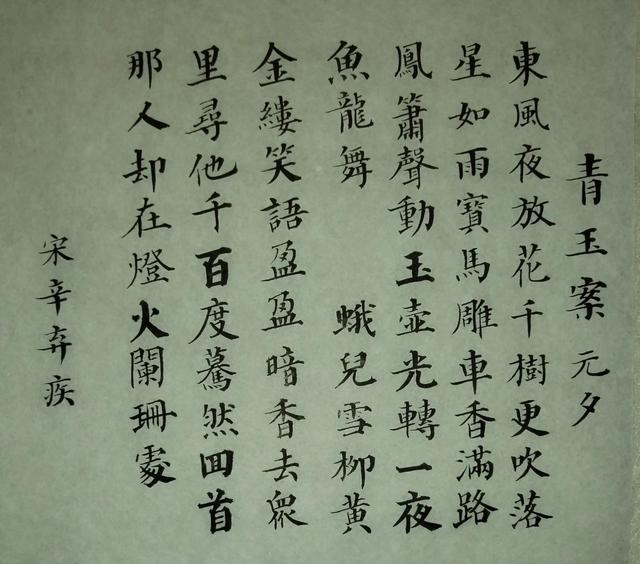 青玉案 元夕
東風夜放花千樹更吹落
星如雨寶馬雕車香滿路
鳳簫聲動玉壺光轉一夜
魚龍舞 蛾兒雪柳黃
金縷笑語盈盈暗香去眾
里尋他千百度驀然回首
那人却在燈火闌珊處
宋辛弃疾